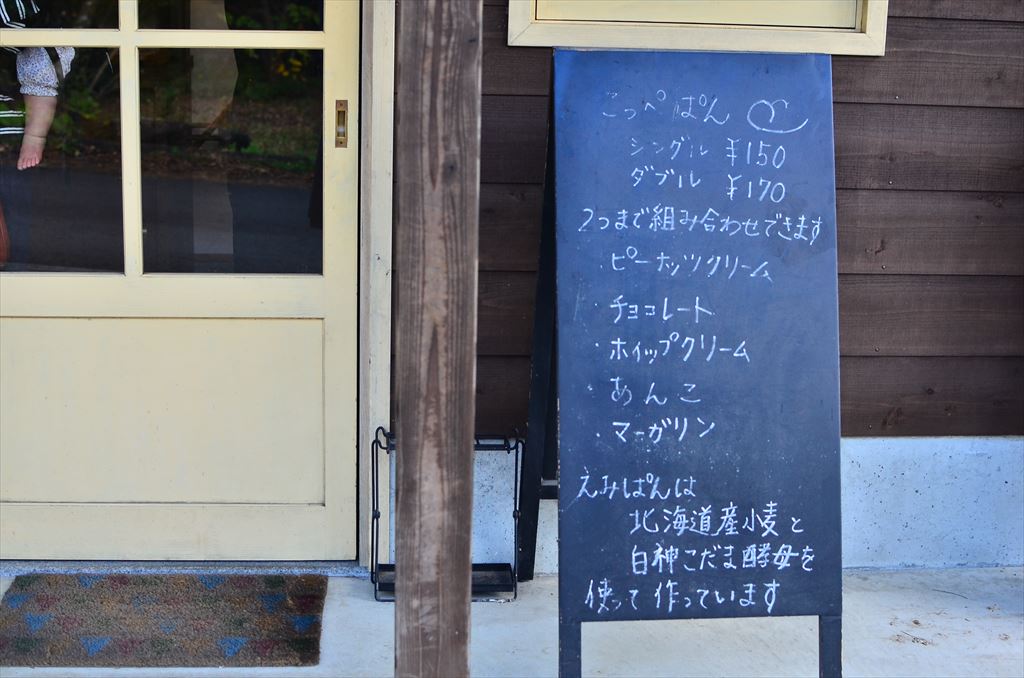 こっぺぱん
シングル ¥150
ダブル ¥170
2つまで組み合わせできます
・ピーナッツクリーム
・チョコレート
・ホイップクリーム
・あんこ
・マーガリン
えみぱんは
北海道産小麦と
白神こだま酵母を
使って作っています